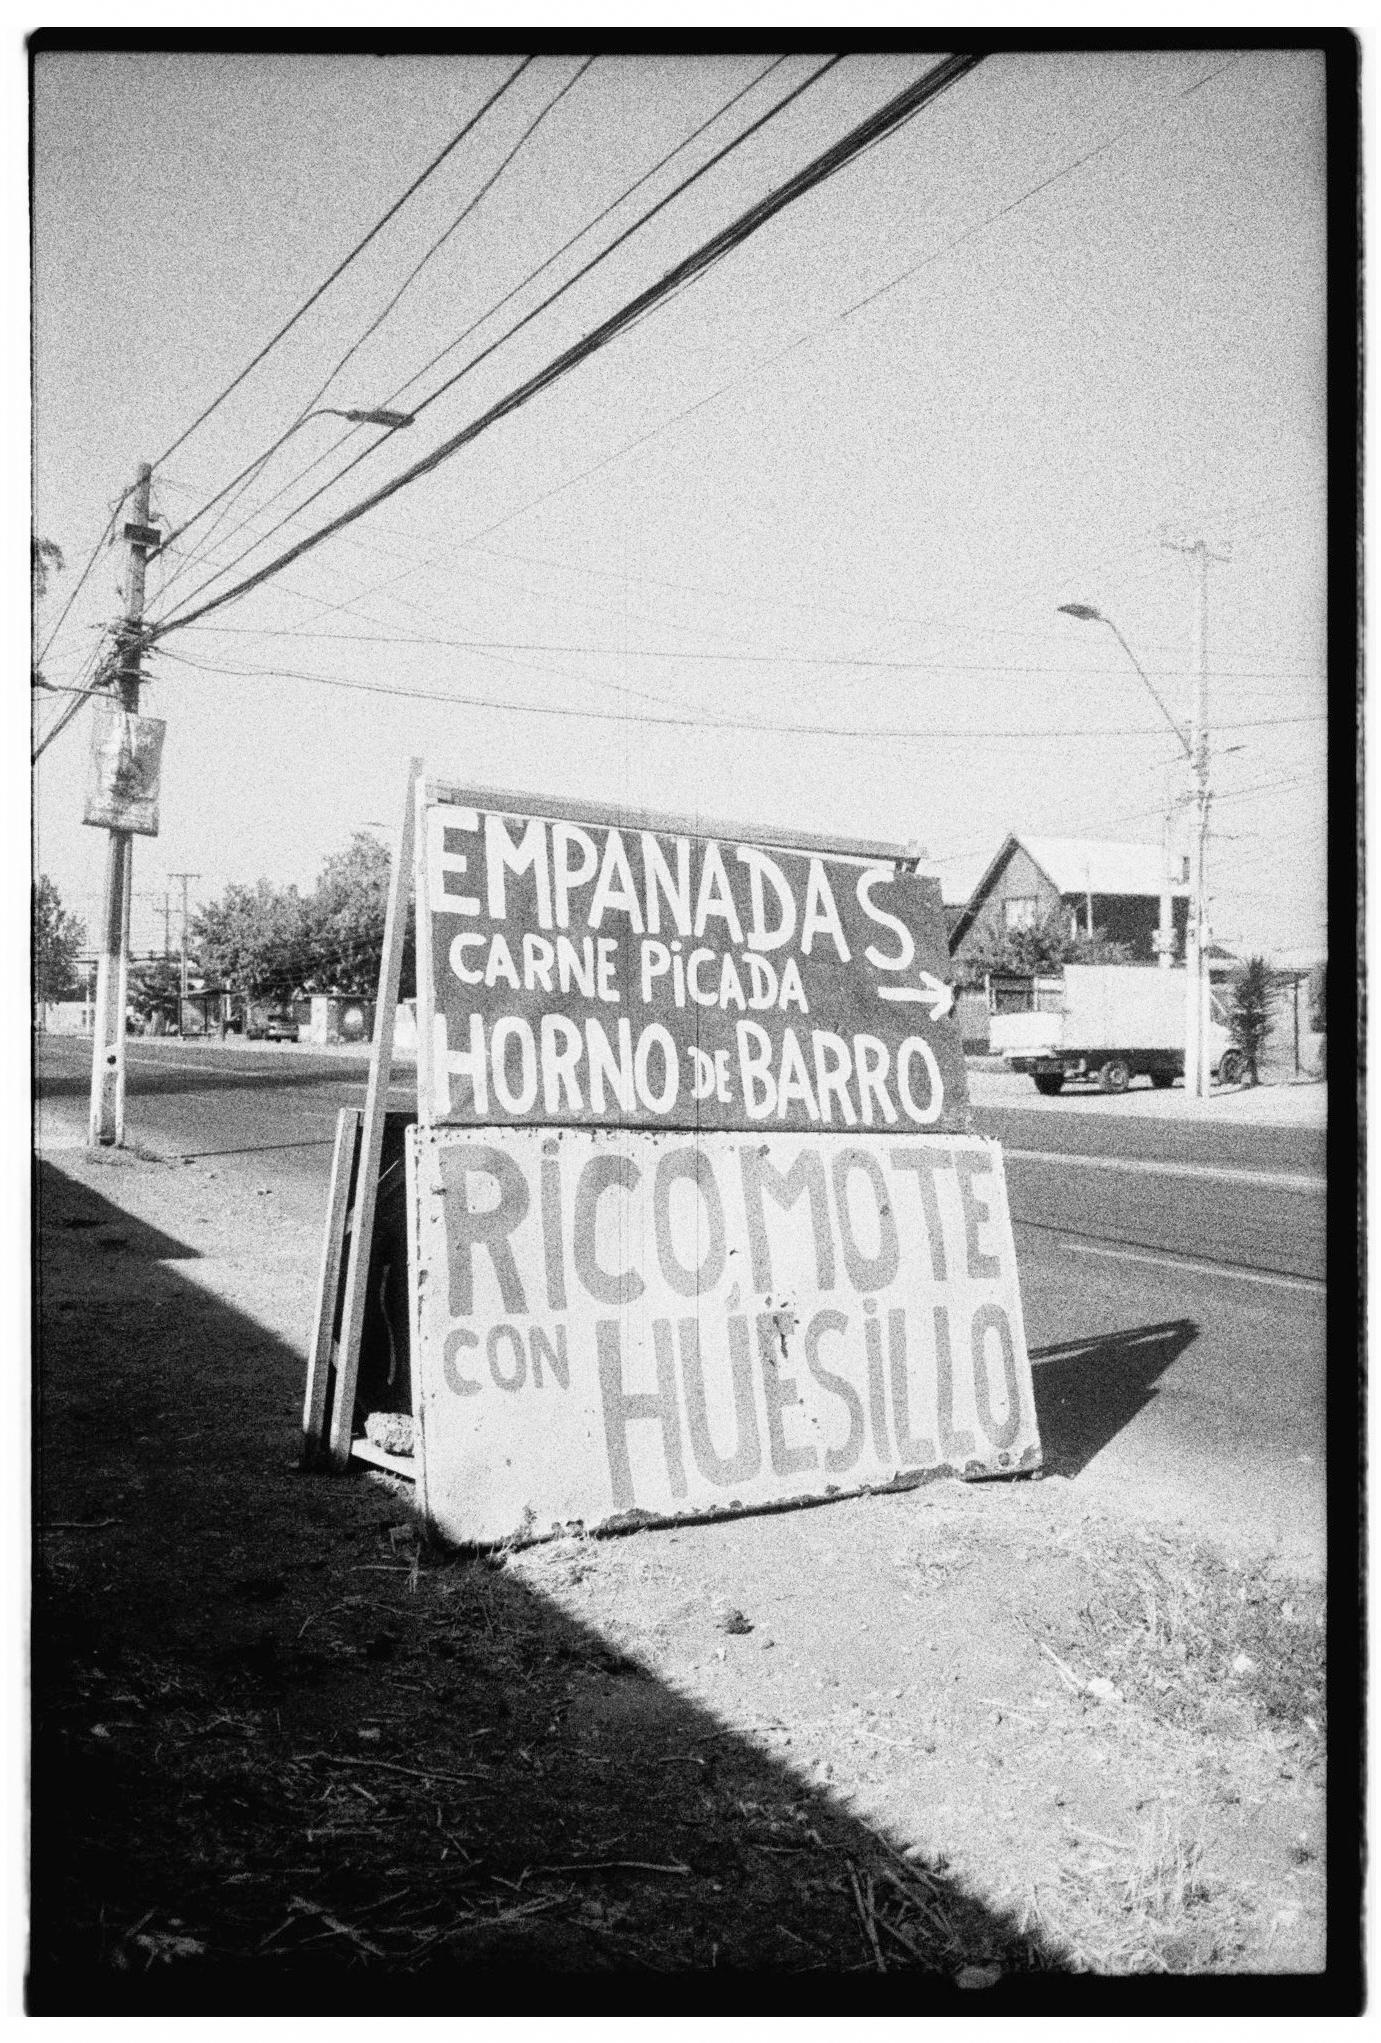 EMPANADAS
CARNE PiCADA
→
HORNO DE BARRO
RiCOMOTE
CON HUESiLLO